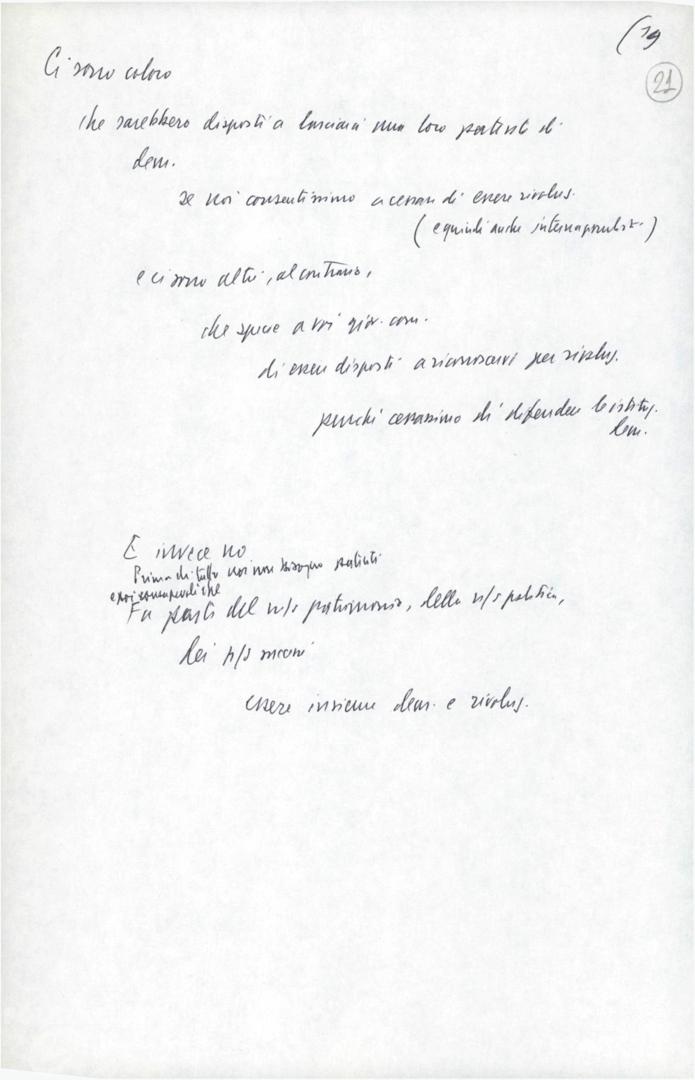 (19
21
Ci sono coloro
che sarebbero disposti a lasciarci una loro patente di
dem.
se noi consentissimo a cessare di essere rivoluz.
(e quindi anche internazionalist.)
e ci sono altri, al contrario,
che specie a voi giov. com.
di essere disposti a riconoscervi per rivoluz.
purché cessassimo di difendere le istituz.
dem.
E invece no
Prima di tutto noi non bisogno patenti
e poi
Fa parte del n/s patrimonio, della n/s politica,
dei n/s
essere insieme dem. e rivoluz.